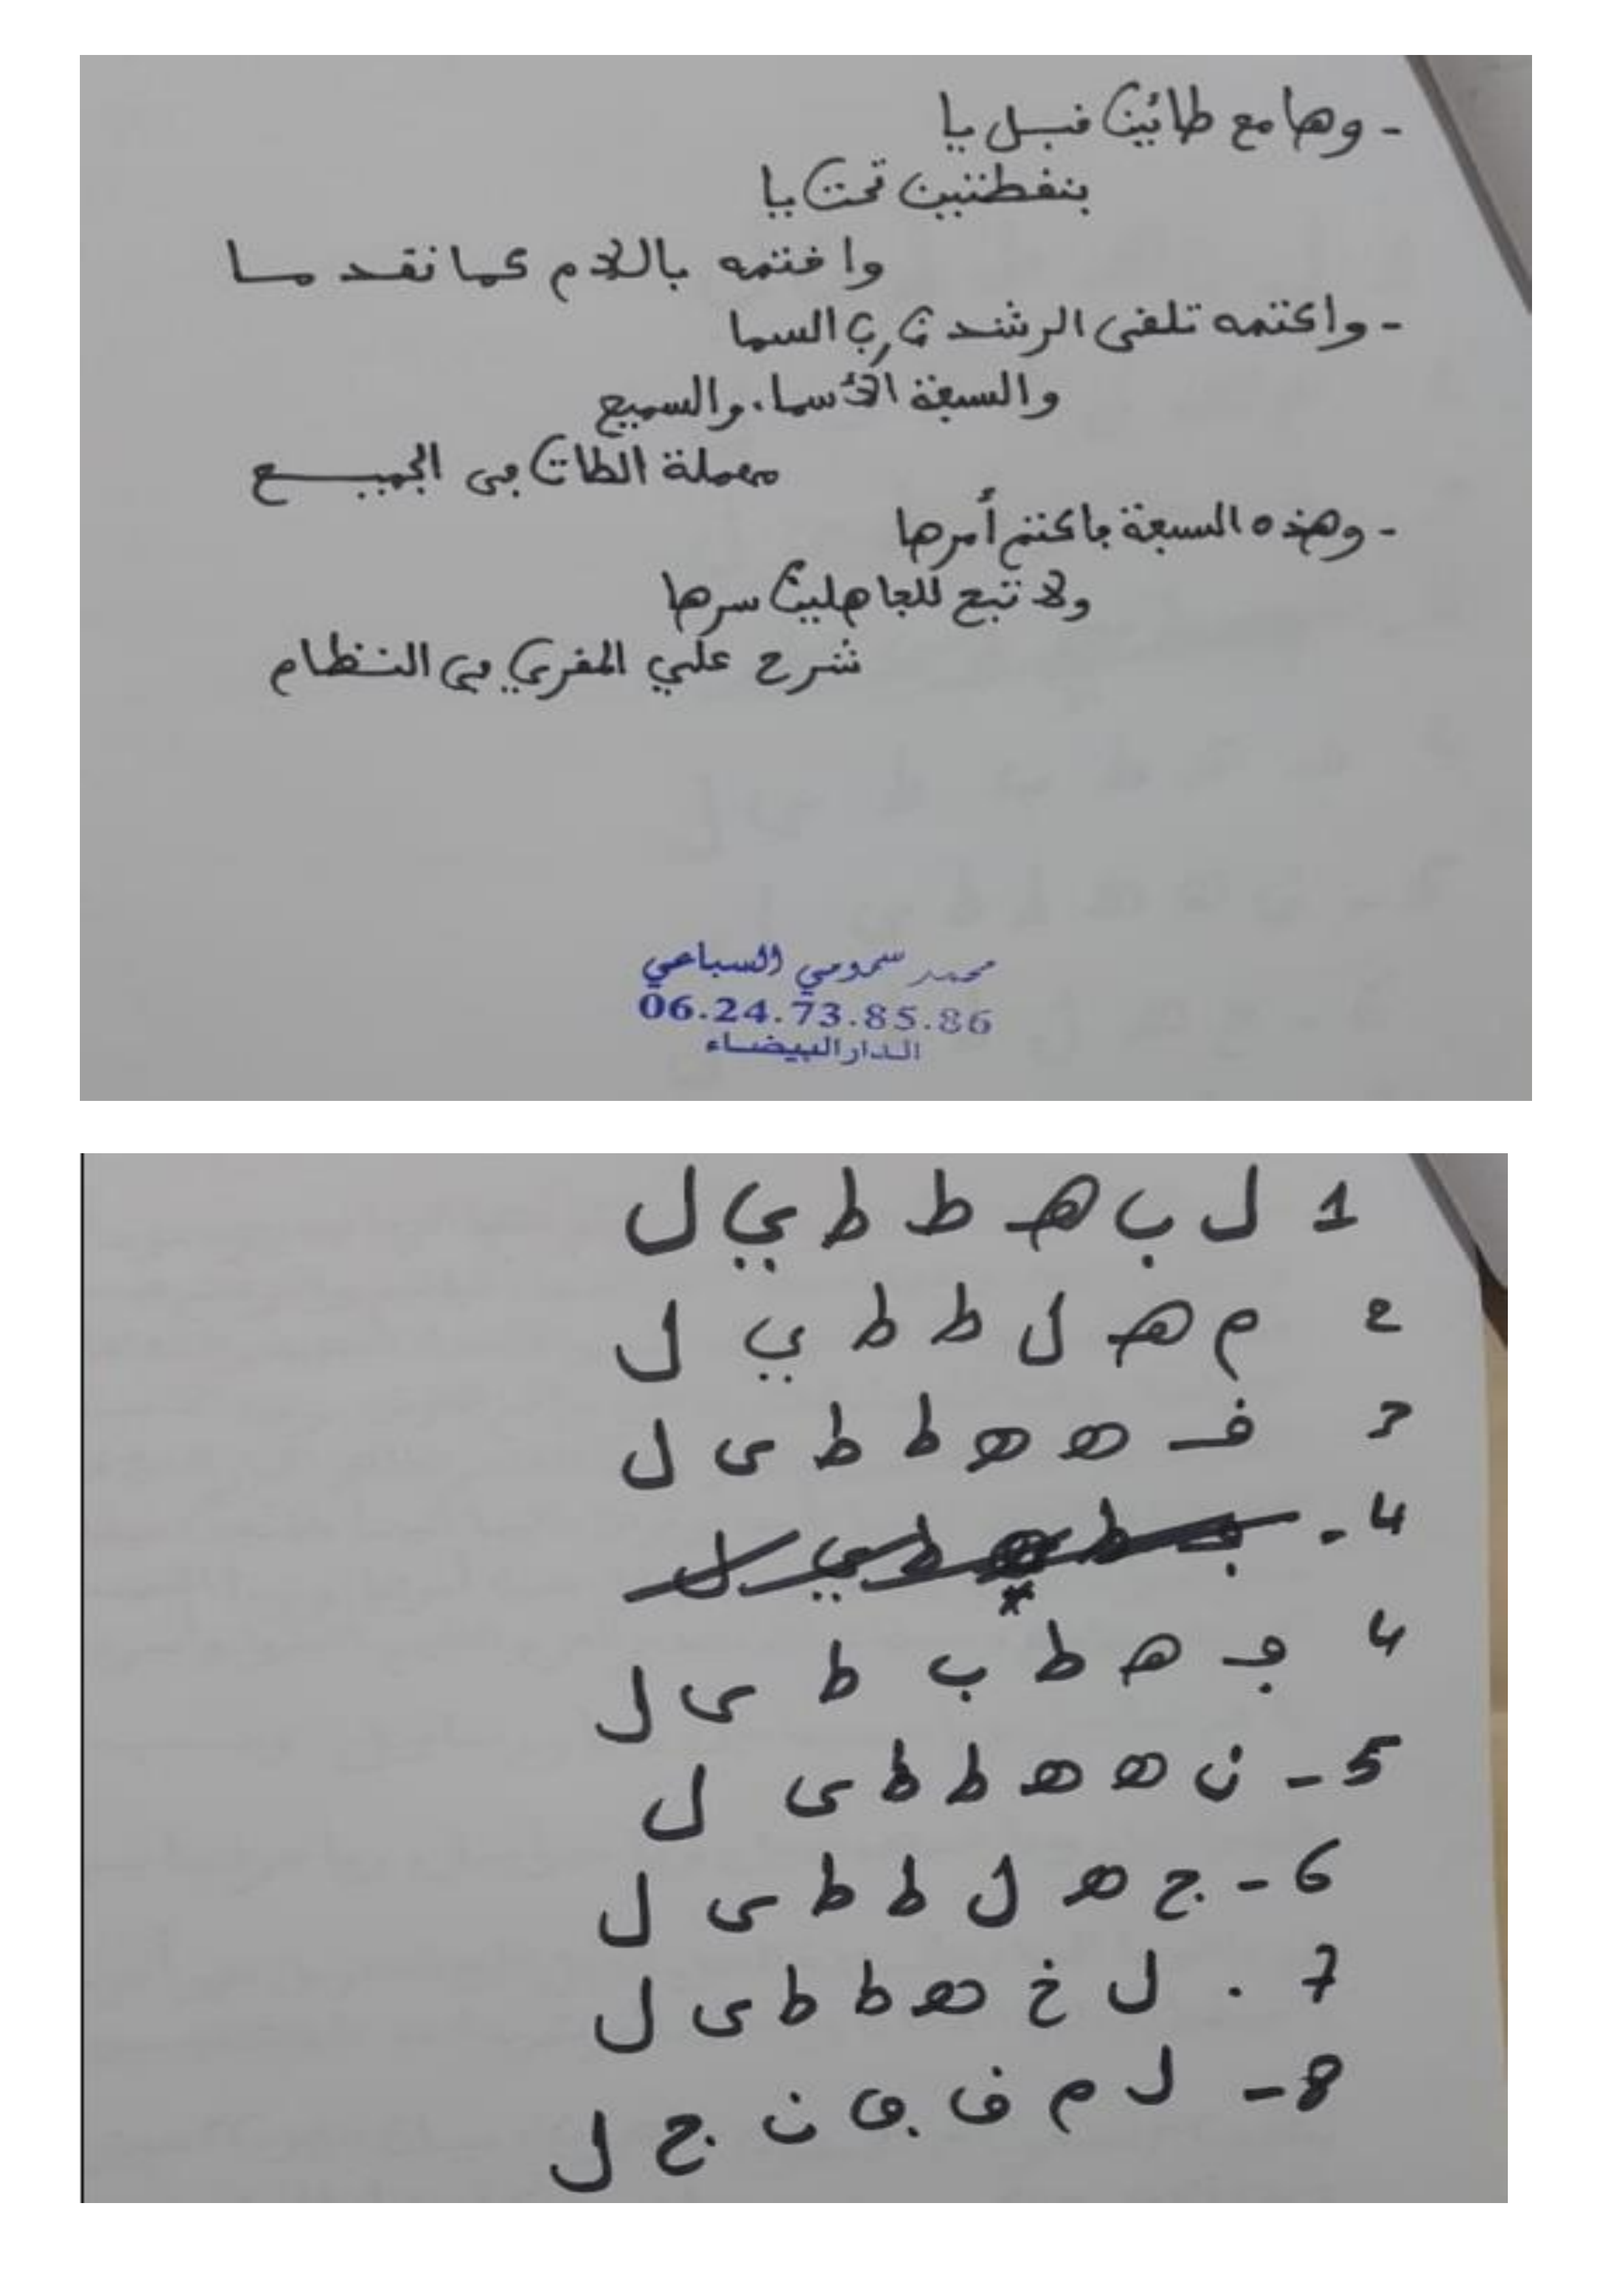 - وها مع طائين قبل يا
بنقطتين تحت يا
واختمه باللام كما تقدما
- واكتمه تلقى الرشد في رب السما
والسبعة الأسماء والسميع
مهملة الطات في الجميع
- وهذه السبعة فاكتم أمرها
ولا تبح للجاهلين سرها
شرح علي المقري في النظام
محمد سمومي السباعي
06.24.73.85.86
الدار البيضاء
1 ل ب هـ ط ط ي ل
2 م هـ ل ط ط ي ل
3 ف ه ه ط ط ى ل
4 -
4 ڢ هـ ط ب ط ى ل
5 - ن ه ه ط ط ى ل
6 - ج ه ل ط ط ى ل
7 . ل خ ه ط ط ى ل
8 - ل م ف ڢ ن ج ل